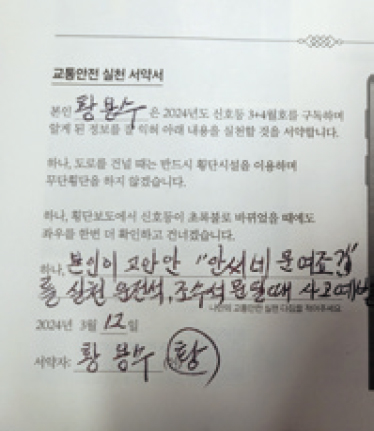 교통안전 실천 서약서
본인 황용수 은 2024년도 신호등 3+4월호를 구독하며
알게 된 정보를 잘 익혀 아래 내용을 실천할 것을 서약합니다.
하나, 도로를 건널 때는 반드시 횡단시설을 이용하며
무단횡단을 하지 않겠습니다.
하나, 횡단보도에서 신호등이 초록불로 바뀌었을 때에도
좌우를 한번 더 확인하고 건너겠습니다.
하나, 본인이 고안한 "안써네 문여조심"
를 실천 운전석, 조수석 문 열때 사고예방
나만의 교통안전 실천 다짐을 적어주세요
2024년 3월 12일
서약자: 황용수 황